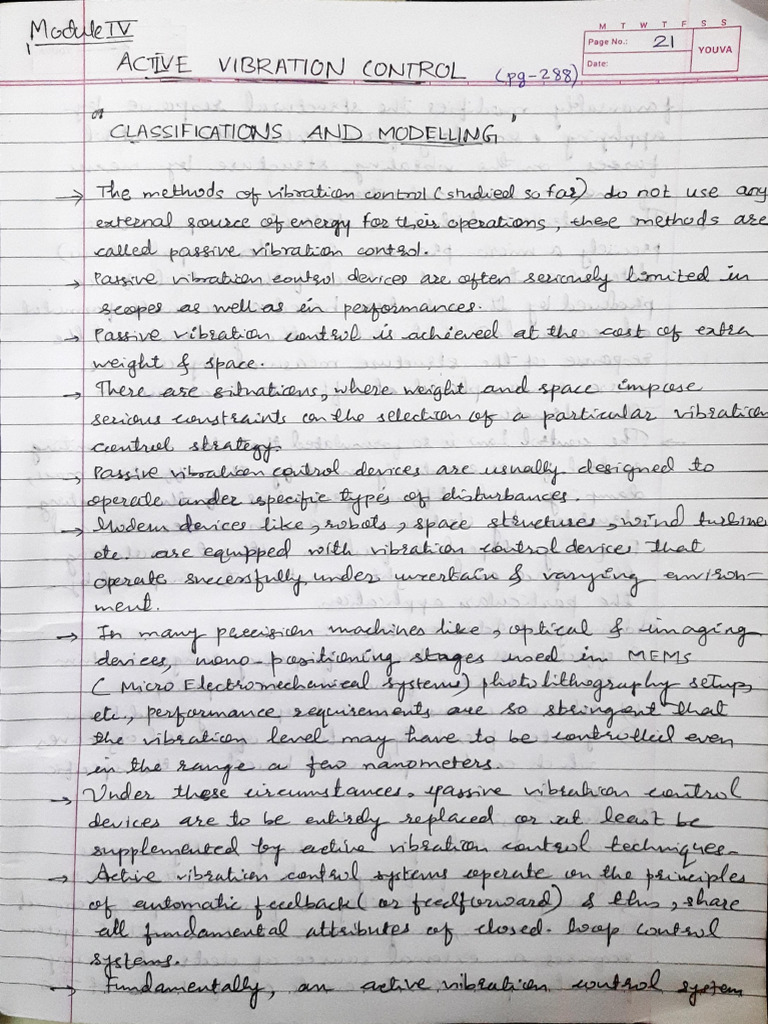 Module IV
M T W T F S S
Page No.: 21
YOUVA
Date:
ACTIVE VIBRATION CONTROL (pg-288)
CLASSIFICATIONS AND MODELLING
→ The methods of vibration control (studied so far) do not use any
external source of energy for their operations, these methods are
called passive vibration control.
→ Passive vibration control devices are often seriously limited in
scopes as well as in performances.
→ Passive vibration control is achieved at the cost of extra
weight & space.
→ There are situations, where weight and space impose
serious constraints on the selection of a particular vibration
control strategy.
→ Passive vibration control devices are usually designed to
operate under specific types of disturbances.
→ Modern devices like, robots, space structures, wind turbine
etc. are equipped with vibration control devices that
operate successfully under uncertain & varying environ-
ment.
→ In many precision machines like, optical & imaging
devices, nano-positioning stages used in MEMS
(Micro Electromechanical systems) photolithography setup,
etc., performance requirements are so stringent that
the vibration level may have to be controlled even
in the range a few nanometers.
→ Under these circumstances, passive vibration control
devices are to be entirely replaced or at least be
supplemented by active vibration control techniques.
→ Active vibration control systems operate on the principles
of automatic feedback (or feedforward) & thus, share
all fundamental attributes of closed-loop control
systems.
→ Fundamentally, an active vibration control system